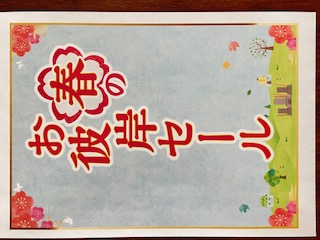 春の
お彼岸セール